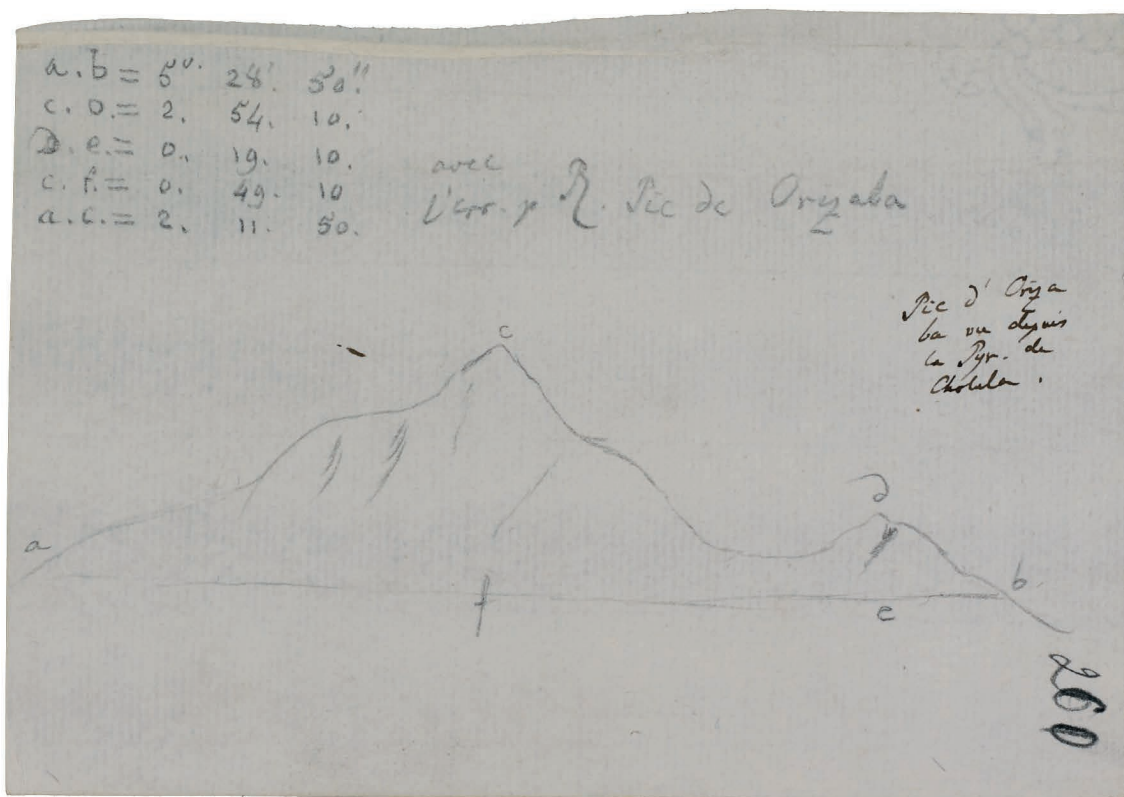 a.b = 5°. 28'. 50''
c. D. = 2. 54. 10.
D. e. = 0. 19. 10.
c. f. = 0. 49. 10
a. c. = 2. 11. 50.
avec
l'err. p Pic de Orizaba
Pic d' Oriza
ba vu depuis
la Pyr. de
Cholula.
c
d
a
b
f
e
260